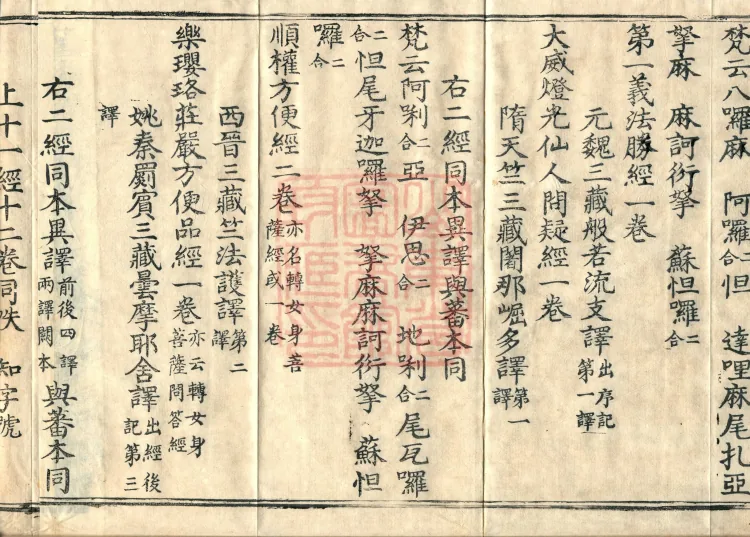 梵云八囉麻 阿囉二合怛 達哩麻尾扎亞
拏麻 麻訶衍拏 蘇怛囉二合
第一義法勝經一卷
元魏三藏般若流支譯出序記第一譯
大威燈光仙人問疑經一卷
隋天竺三藏闍那崛多譯第一譯
右二經同本異譯與蕃本同
梵云阿唎二合亞 伊恩二合 地唎二合尾瓦囉
二合怛尾牙迦囉拏 拏麻麻訶衍拏 蘇怛
囉二合
順權方便經二卷亦名轉女身菩薩經或一卷
西晉三藏竺法護譯第二譯
樂瓔珞莊嚴方便品經一卷亦云轉女身菩薩問答經
姚秦罽賓三藏曇摩耶舍譯出經後記第三
譯
右二經同本異譯前後四譯兩譯闕本與蕃本同
上十一經十二卷同帙 知字號